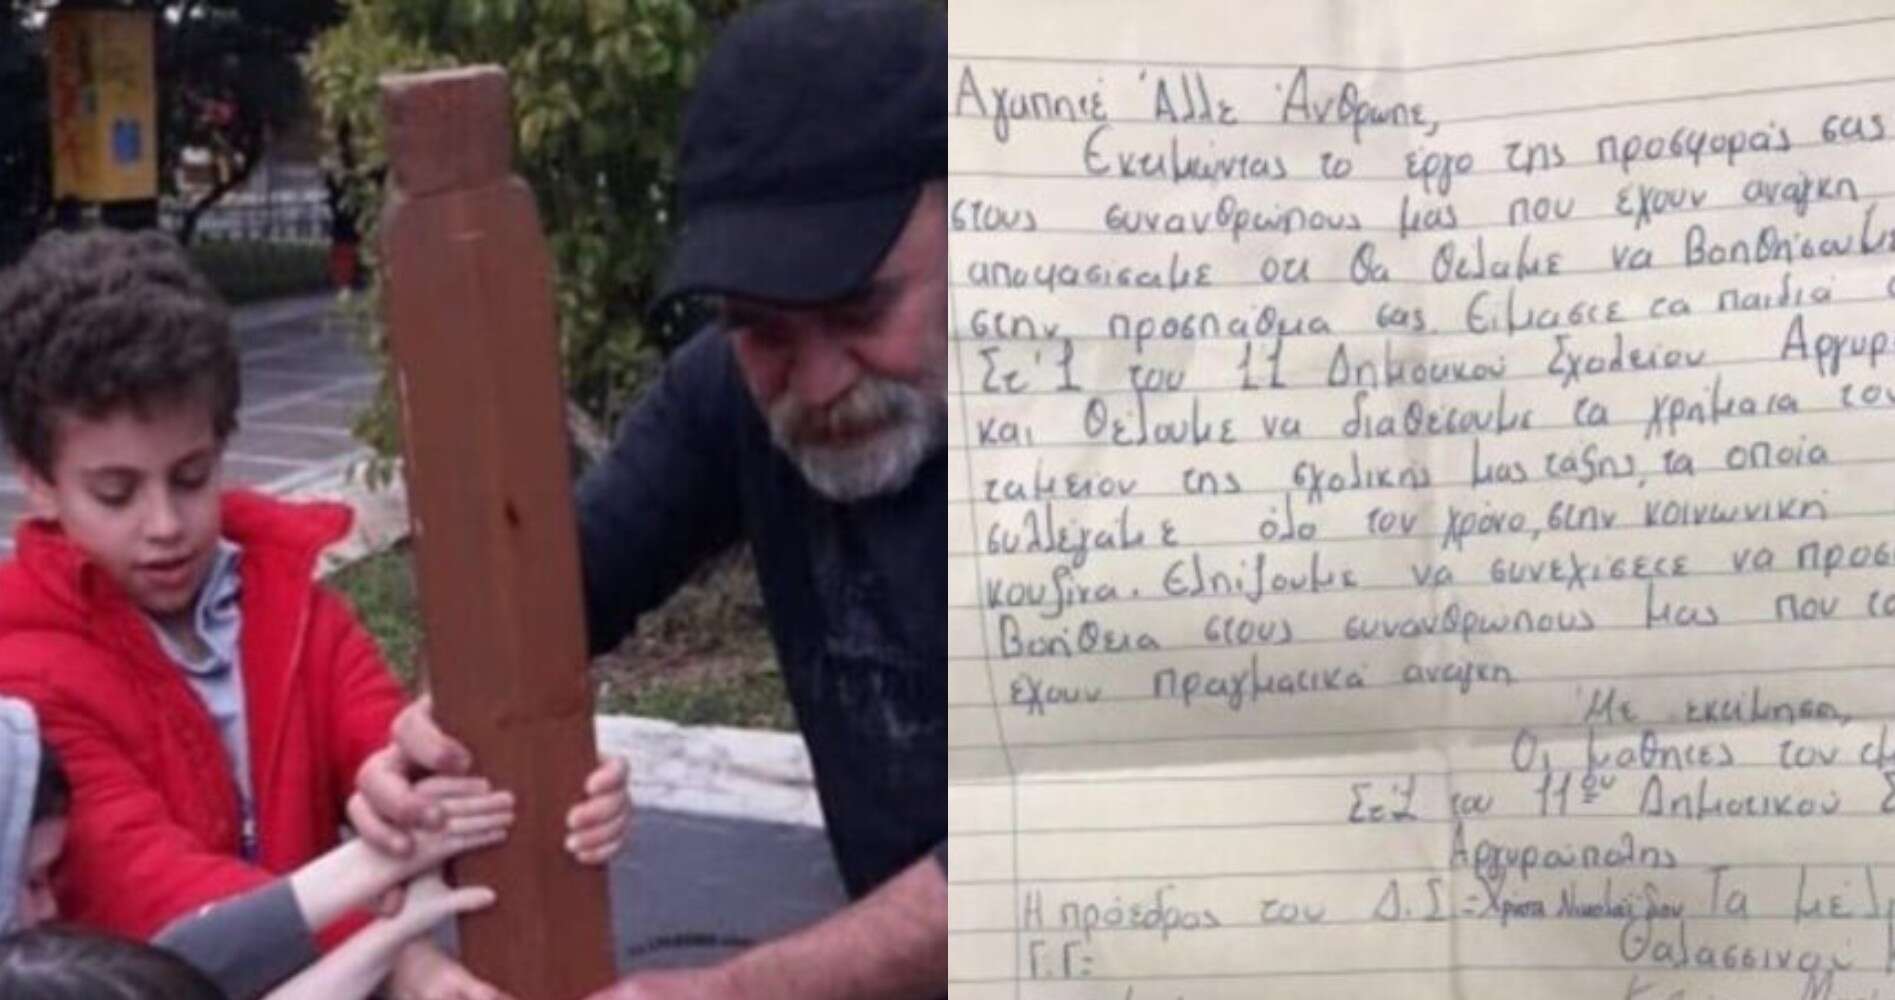 Αγαπητέ Άλλε Άνθρωπε,
Εκτιμώντας το έργο της προσφοράς σας
στους συνανθρώπους μας που έχουν ανάγκη
αποφασίσαμε οτι θα θέλαμε να βοηθήσουμε
στην προσπάθεια σας. Είμαστε τα παιδιά
Στ'1 του 11 Δημοτικού Σχολείου Αργυρ
και θέλουμε να διαθέσουμε τα χρήματα του
ταμείου της σχολικής μας τάξης, τα οποία
συλλέγαμε όλο τον χρόνο, στην κοινωνική
κουζίνα. Ελπίζουμε να συνεχίσετε να προσ
βοήθεια στους συνανθρώπους μας που το
έχουν πραγματικά ανάγκη
Με εκτίμηση,
Οι μαθητές του
Στ'1 του 11ου Δημοτικού Σ
Αργυρούπολης
Η πρόεδρος του Δ.Σ = Χρύσα Νικολαΐδου Τα μέλ
Γ.Γ: Θαλασσινού